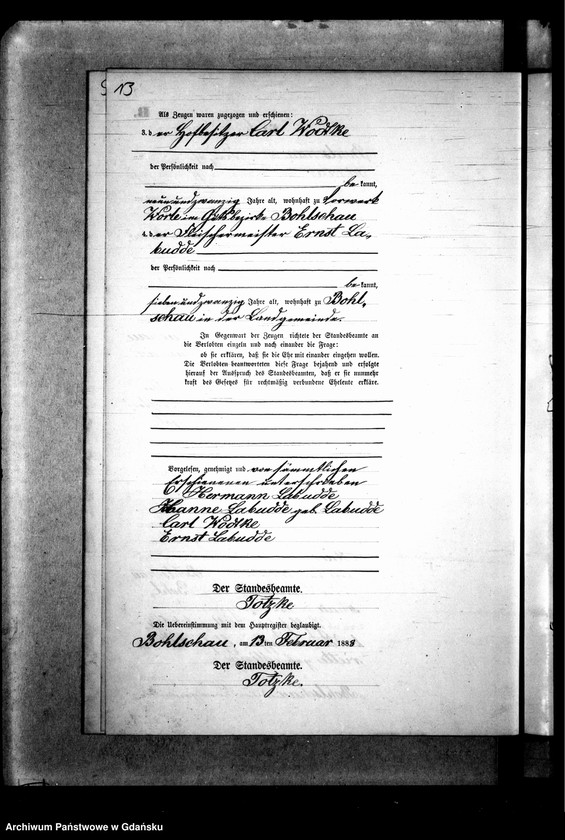 13
B.
Als Zeugen waren zugezogen und erschienen:
3. der Hofbesitzer Carl Wodtke
der Persönlichkeit nach
bekannt,
neunundzwanzig Jahre alt, wohnhaft zu Vorwerk
Worle im Gutsbezirke Bohlschau
4. der Fleischermeister Ernst La-
budde
der Persönlichkeit nach
bekannt,
siebenundzwanzig Jahre alt, wohnhaft zu Bohl-
schau in der Landgemeinde.
In Gegenwart der Zeugen richtete der Standesbeamte an
die Verlobten einzeln und nach einander die Frage:
ob sie erklären, daß sie die Ehe mit einander eingehen wollen.
Die Verlobten beantworteten diese Frage bejahend und erfolgte
hierauf der Ausspruch des Standesbeamten, daß er sie nunmehr
kraft des Gesetzes für rechtmäßig verbundene Eheleute erkläre.
Vorgelesen, genehmigt und von sämmtlichen
Erschienenen unterschrieben
Hermann Labudde
Labudde geb. Labudde
Carl Wodtke
Ernst Labudde
Der Standesbeamte.
Totzke
Die Uebereinstimmung mit dem Hauptregister beglaubigt.
Bohlschau, am 13ten Februar 1888
Der Standesbeamte.
Totzke.
Archiwum Państwowe w Gdańsku